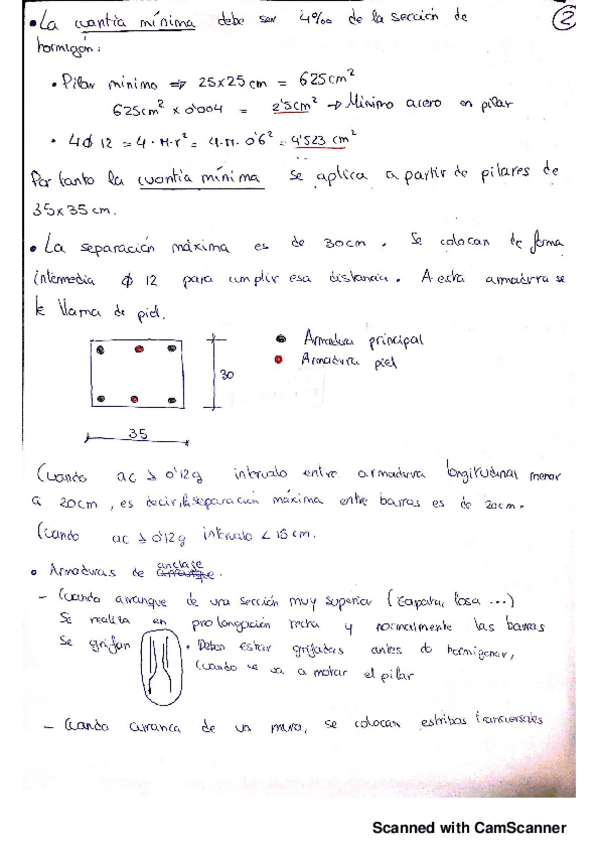 ②
• La cuantía mínima debe ser 4‰ de la sección de
hormigón:
• Pilar mínimo => 25x25cm = 625cm²
625cm² x 0'004 = 2'5cm² -> Mínimo acero en pilar
• 4ϕ12 = 4·π·r² = 4·π·0'6² = 4'523 cm²
Por tanto la cuantía mínima se aplica a partir de pilares de
35x35cm.
• La separación máxima es de 30cm. Se colocan de forma
intermedia ϕ 12 para cumplir esa distancia. A esta armadura se
le llama de piel.
• Armadura principal
• Armadura piel
30
35
Cuando ac ≥ 0'12g intervalo entre armadura longitudinal menor
a 20cm, es decir, la separación máxima entre barras es de 20cm.
Cuando ac ≥ 0'12g intervalo < 15cm.
• Armaduras de anclaje.
- Cuando arranque de una sección muy superior (zapata, losa ...)
Se realiza en prolongación recta y normalmente las barras
Se grifan • Deben estar grifadas antes de hormigonar,
cuando se va a montar el pilar
- Cuando arranca de un muro, se colocan estribos transversales
Scanned with CamScanner